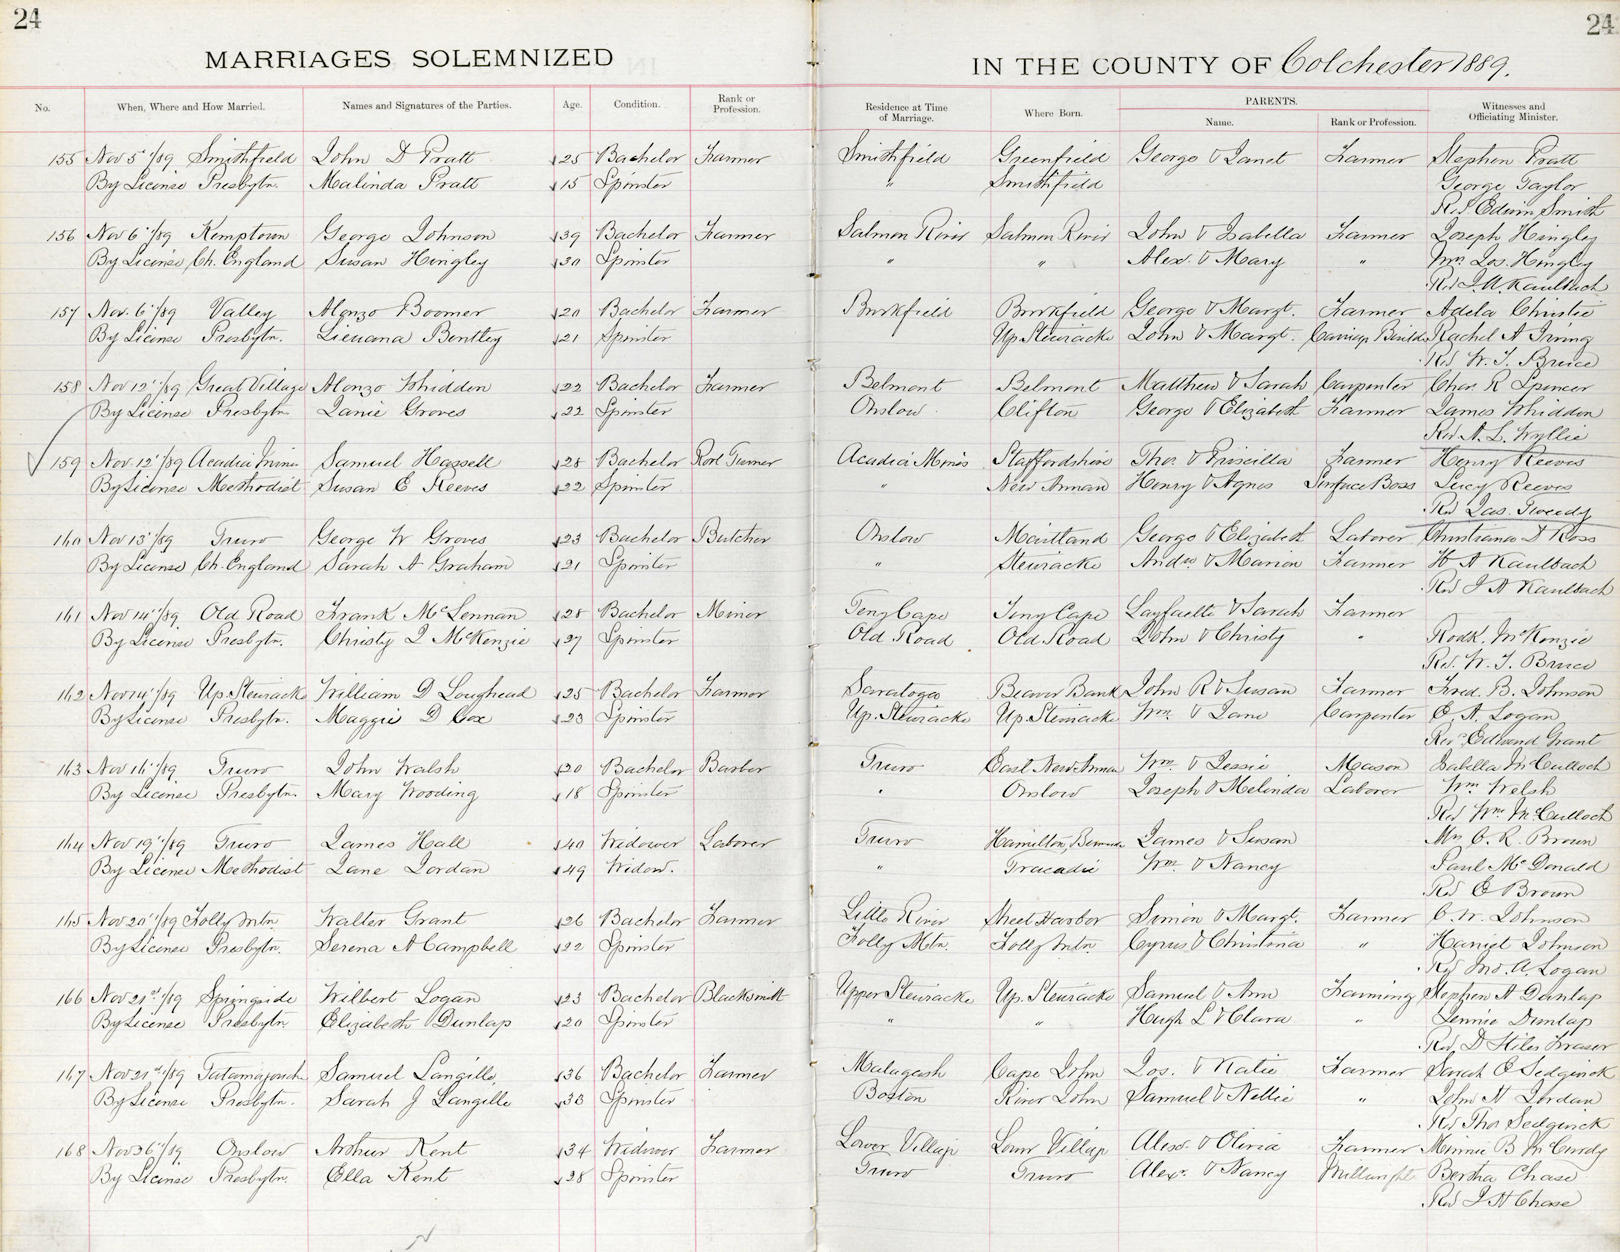 24
24
MARRIAGES SOLEMNIZED
IN THE COUNTY OF Colchester 1889.
No. When, Where and How Married. Names and Signatures of the Parties. Age. Condition. Rank or Profession. Residence at Time of Marriage. Where Born. PARENTS. Name. Rank or Profession. Witnesses and Officiating Minister.
155 Nov 5"/89 Smithfield John D Pratt 25 Bachelor Farmer Smithfield Greenfield George & Janet Farmer Stephen Pratt
By License Presbytn. Malinda Pratt 15 Spinster " Smithfield George Taylor
Rev Edwin Smith
156 Nov 6"/89 Kemptown George Johnson 39 Bachelor Farmer Salmon River Salmon River John & Isabella Farmer Joseph Hingley
By License Ch. England Susan Hingley 30 Spinster " " Alex. & Mary " Wm. Jos. Hingley
Rev J. A. Kaulbach
157 Nov. 6"/89 Valley Alonzo Boomer 20 Bachelor Farmer Brookfield Brookfield George & Margt. Farmer Adela Christie
By License Presbytn. Lieuana Bentley 21 Spinster Up Stewiacke John & Margt. Carriage Builder Rachel A Irving
Rev W. T. Bruce
158 Nov 12"/89 Great Village Alonzo Whidden 22 Bachelor Farmer Belmont Belmont Matthew & Sarah Carpenter Chas. R Spencer
By License Presbytn Janie Groves 22 Spinster Onslow Clifton George & Elizabeth Farmer James Whidden
Rev A. L. Wyllie
159 Nov 12"/89 Acadia Mines Samuel Hassell 28 Bachelor Roll Turner Acadia Mines Staffordshire Thos. & Priscilla Farmer Henry Reeves
By License Methodist Susan E Reeves 22 Spinster " New Annan Henry & Agnes Surface Boss Lucy Reeves
Rev Jas. Tweedy
160 Nov 13"/89 Truro George W Groves 23 Bachelor Butcher Onslow Maitland George & Elizabeth Laborer Christiana D Ross
By License Ch. England Sarah A Graham 21 Spinster " Stewiacke Andw & Marion Farmer H A Kaulbach
Rev J A Kaulbach
161 Nov 14"/89. Old Road Frank McLennan 28 Bachelor Miner Teny Cape Teny Cape Layfaette & Sarah Farmer
By License Presbytn. Christy I McKenzie 27 Spinster Old Road Old Road John & Christy " Rodk. McKenzie
Rev. W. T. Bruce
162 Nov 14"/89 Up. Stewiack William D Loughead 25 Bachelor Farmer Saratoga Beaver Bank John R & Susan Farmer Fred. B. Johnson
By License Presbytn. Maggie D Cox 23 Spinster Up. Stewiacke Up. Stewiacke Wm. & Jane Carpenter E. A. Logan
Rev. Edward Grant
163 Nov 16"/89. Truro John Walsh 20 Bachelor Barber Truro East New Annan Wm. & Jessie Mason Isabella McCulloch
By License Presbytn. Mary Wooding 18 Spinster " Onslow Joseph & Melinda Laborer Wm Welsh
Rev Wm. McCulloch
164 Nov 19"/89 Truro James Hall 40 Widower Laborer Truro Hamilton, Bermuda James & Susan Mrs C. R. Brown
By License Methodist Jane Jordan 49 Widow. " Tracadie Wm. & Nancy Paul McDonald
Rev E Brown
165 Nov 20"/89 Folly Mtn. Walter Grant 26 Bachelor Farmer Little River Sheet Harbor Simon & Margt. Farmer C. W. Johnson
By License Presbytn. Serena A Campbell 22 Spinster Folly Mtn. Folly Mtn. Cyrus & Christina " Harriet Johnson
Rev Jno. A. Logan
166 Nov 21st/89 Springside Wilbert Logan 23 Bachelor Blacksmith Upper Stewiacke Up. Stewiacke Samuel & Ann Farming Stephen A Dunlap
By License Presbytn Elizabeth Dunlap 20 Spinster " " Hugh L & Clara " Jennie Dunlap
Rev D Stiles Fraser
167 Nov 21st/89 Tatamagouche Samuel Langille, 36 Bachelor Farmer Malagash Cape John Jos. & Katie Farmer Sarah E Sedgwick
By License Presbytn. Sarah J Langille 33 Spinster Boston River John Samuel & Nellie " John H Jordan
Rev Thos Sedgwick
168 Nov 26"/89. Onslow Arthur Kent 34 Widower Farmer Lower Village Lower Village Alex. & Olivia Farmer Minnie B McCurdy
By License Presbytn. Ella Kent 28 Spinster Truro Truro Alex. & Nancy Millwright Bertha Chase
Rev J H Chase